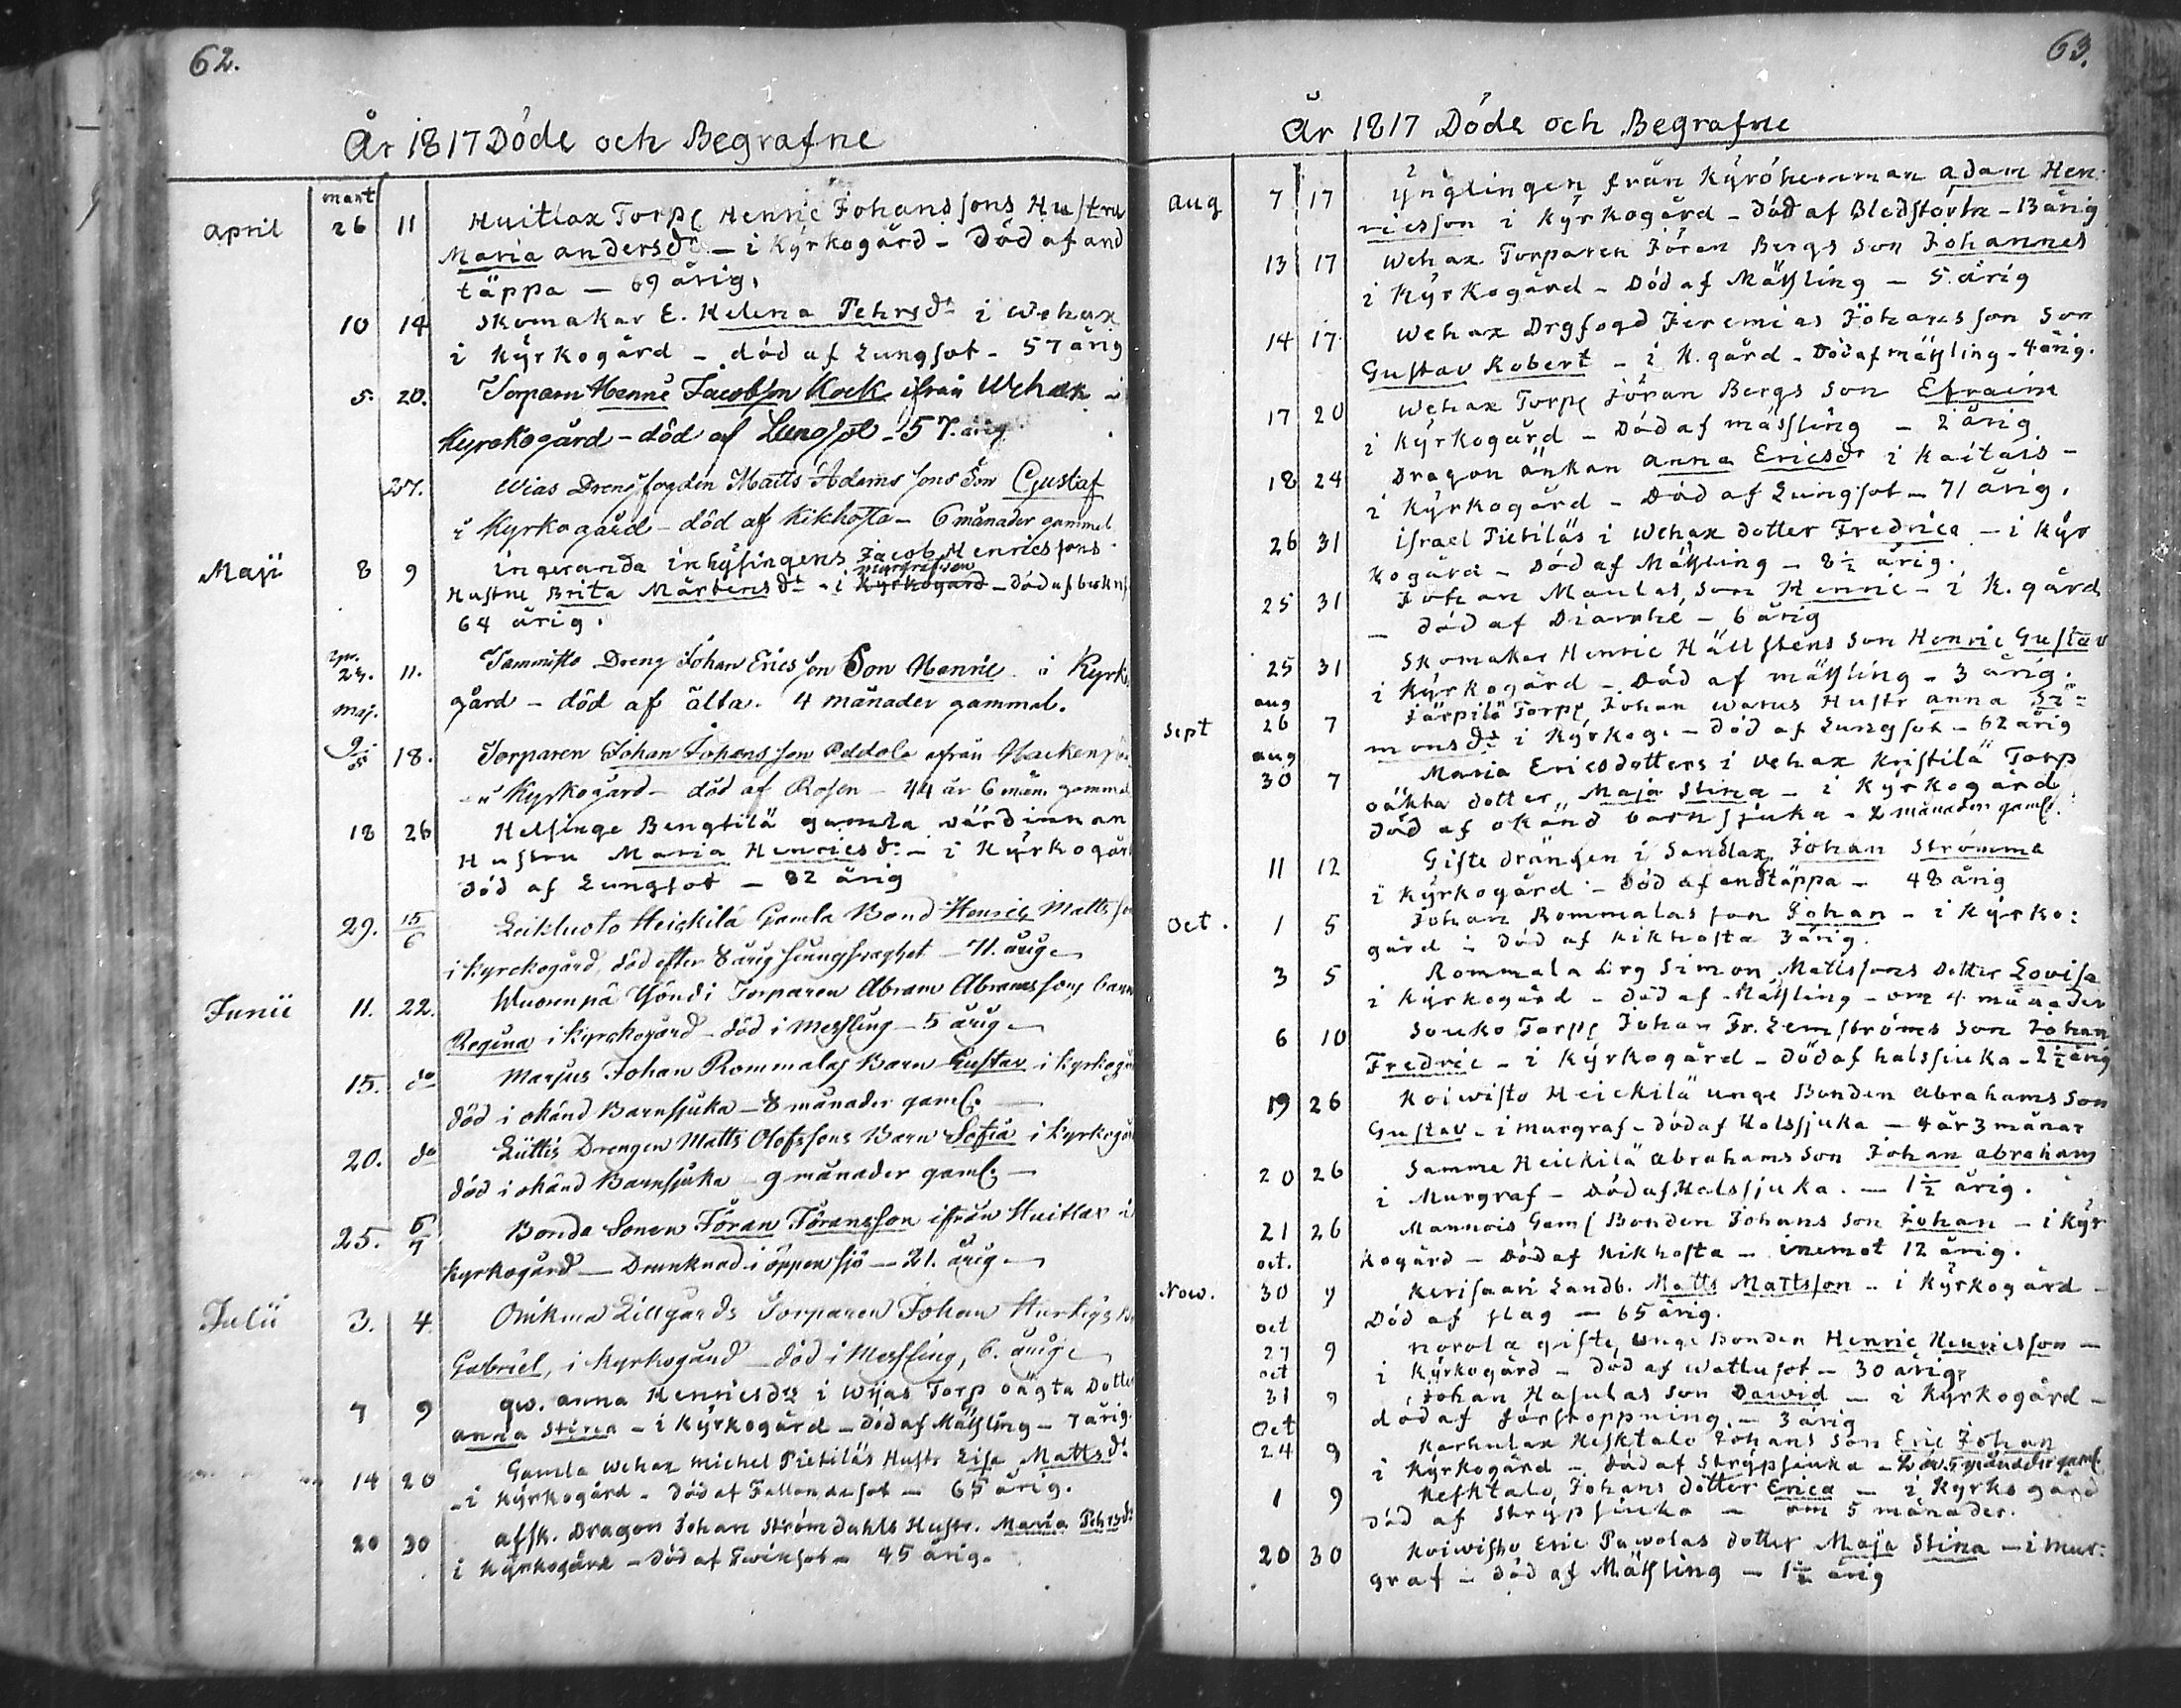 62.
År 1817 Döde och Begrafne
mart
april 26 11 Huitlax Torp Henric Johanssons Hustru
Maria andersdr - i Kýrkogård - död af and
täppa - 69 årig.
10 14 Skomakar E. Helena Pehrsdr i Wehax
i Kýrkogård - död af Lungsot - 57 årig
5. 20. Torparn Henric Jacobson Kock ifrån Wehax i
Kyrkogård - död af Lungsot - 57. årig
27. Wias Drengfogden Matts Adamssons Son Gustaf
i Kyrkogård - död af Kikhosta - 6 månader gammal
Maji 8 9 ingeranda inhýsingens Jacob Henricssons
Hustru Brita Mårtensdr - i Kyrkogård - död af
64 årig.
11. Tammisto Dreng Johan Ericsson Son Henric i Kyrko
gård - död af älta. 4 månader gammal.
maj.
18. Torparen Johan Johansson Oddola ifrån
i Kyrkogård - död af Rosen - 44 år 6 mån. gammal
18 26 Helsinge Bengtilä gamla wärdinnan
Hustru Maria Henricsdr - i Kýrkogård
död af Lungsot - 82 årig
29. 15/6 Heickilä Gamla Bond Henric Matts
i Kyrckogård, död efter 8 årig - 71. årig
Junii 11. 22. Torparen Abram Abramssons barn
Regina i Kyrckogård - död i Messling - 5 årig
15. do Marjus Johan Rommalas Barn Gustav i Kyrkogå
död i okänd Barnsjuka - 8 månader gaml.
20. do Lüttis Drengen Matts Olofssons Barn Sofia i Kyrkogå
död i okänd Barnsjuka - 9 månader gaml. -
25. Bonda Sonen Jöran Jöransson ifrån Huitlax i
Kyrkogård - Drunknad i öppen sjö - 21. årig
Julii 3. 4. Lillgårds Torparen Johan
Gabriel, i Kyrkogård - död i Messling, 6. årig
7 9 qw. anna Henricsdrs i Wijas Torp oägta Dotter
anna Stina - i Kýrkogård - död af Mäßling - 7 årig.
14 20 Gamla Wehax Michel Pietiläs Hustr Lisa Mattsdr
- i Kýrkogård - död af Fallandesot - 65 årig.
20 30 afsk. Dragon Johan Strömdahls Hustr. Maria Pehrsdr
i Kýrkogård - död af Twinsot - 45 årig.
63.
År 1817 Döde och Begrafne
aug 7 17 ÿnglingen från Kýrö hemman adam Hen
ricsson i Kýrkogård - död af Blodstörtn - 13 årig
13 17 Wehax Torparen Jöran Bergs Son Johannes
i Kýrkogård - död af Mäßling - 5 årig
14 17 Wehax Drgfogd Jeremias Johansson Son
Gustav Robert - i K.gård - död af mäßling - 4 årig.
17 20 Wehax Torp Jöran Bergs Son Efraim
i Kýrkogård - död af mässling - 2 årig
18 24 Dragon änkan anna Ericsdr i Kaitais -
i Kýrkogård - död af Lungsot - 71 årig.
26 31 Israel Pietiläs i Wehax dotter Fredrica - i Kýr
kogård - död af Mäßling - 8 1/2 årig.
25 31 Johan Maulas son Henric - i K. gård
- död af Diarrhé - 6 årig
25 31 Skomakar Henric Hällstens Son Henric Gustav
i Kýrkogård - död af mäßling - 3 årig.
aug
Sept 26 7 Järpilä Torp Johan Warus Hustr anna Si=
monsdr i Kýrkog. - död af Lungsot - 62 årig
aug
30 7 Maria Ericsdotters i Vehax Kristilä Torp
oäkta dotter Maja Stina - i Kýrkogård
död af okänd barnsjuka - 2 månader gaml.
11 12 Gifte drängen i Sandlax Johan Strömma
i Kýrkogård - död af andtäppa - 48 årig
Oct. 1 5 Johan Rommalas son Johan - i Kýrko:
gård - död af kikhosta 3 årig.
3 5 Rommala drg Simon Matssons dotter Lovisa
i Kýrkogård - död af Mäßling - om 4 månader
6 10 Souko Torp Johan Fr. Lemströms Son Johan
Fredric - i Kýrkogård - död af halssjuka - 2 1/2 årig
19 26 Koiwisto Heickilä unge Bonden Abrahams Son
Gustav - i murgraf - död af Halssjuka - 4 år 3 månar
20 26 Samme Heickilä Abrahams Son Johan abraham
i Murgraf - död af Halssjuka. - 1 1/2 årig.
21 26 Mannois Gaml Bonden Johans Son Johan - i Kýr
kogård - död af kikhosta - inemot 12 årig.
oct.
Now. 30 9 Kerisaari Landb. Matts Mattsson - i Kýrkogård -
död af slag - 65 årig.
oct
27 9 Norola gifte unge Bonden Henric Henricsson -
i Kýrkogård - död af wattusot - 30 årig
oct
31 9 Johan Hasulas Son Dawid - i Kýrkogård -
död af förstoppning. - 3 årig
Oct
24 9 Karhulax Kesktalo Johans Son Eric Johan
i Kýrkogård - död af Strypsjuka - 2 år 5 månader gaml.
1 9 Kesktalo Johans dotter Erica - i Kýrkogård
död af Strýpsjuka - om 5 månader.
20 30 Koiwisto Eric Pawolas dotter Maja Stina - i mur:
graf - död af Mäßling - 1 1/2 årig